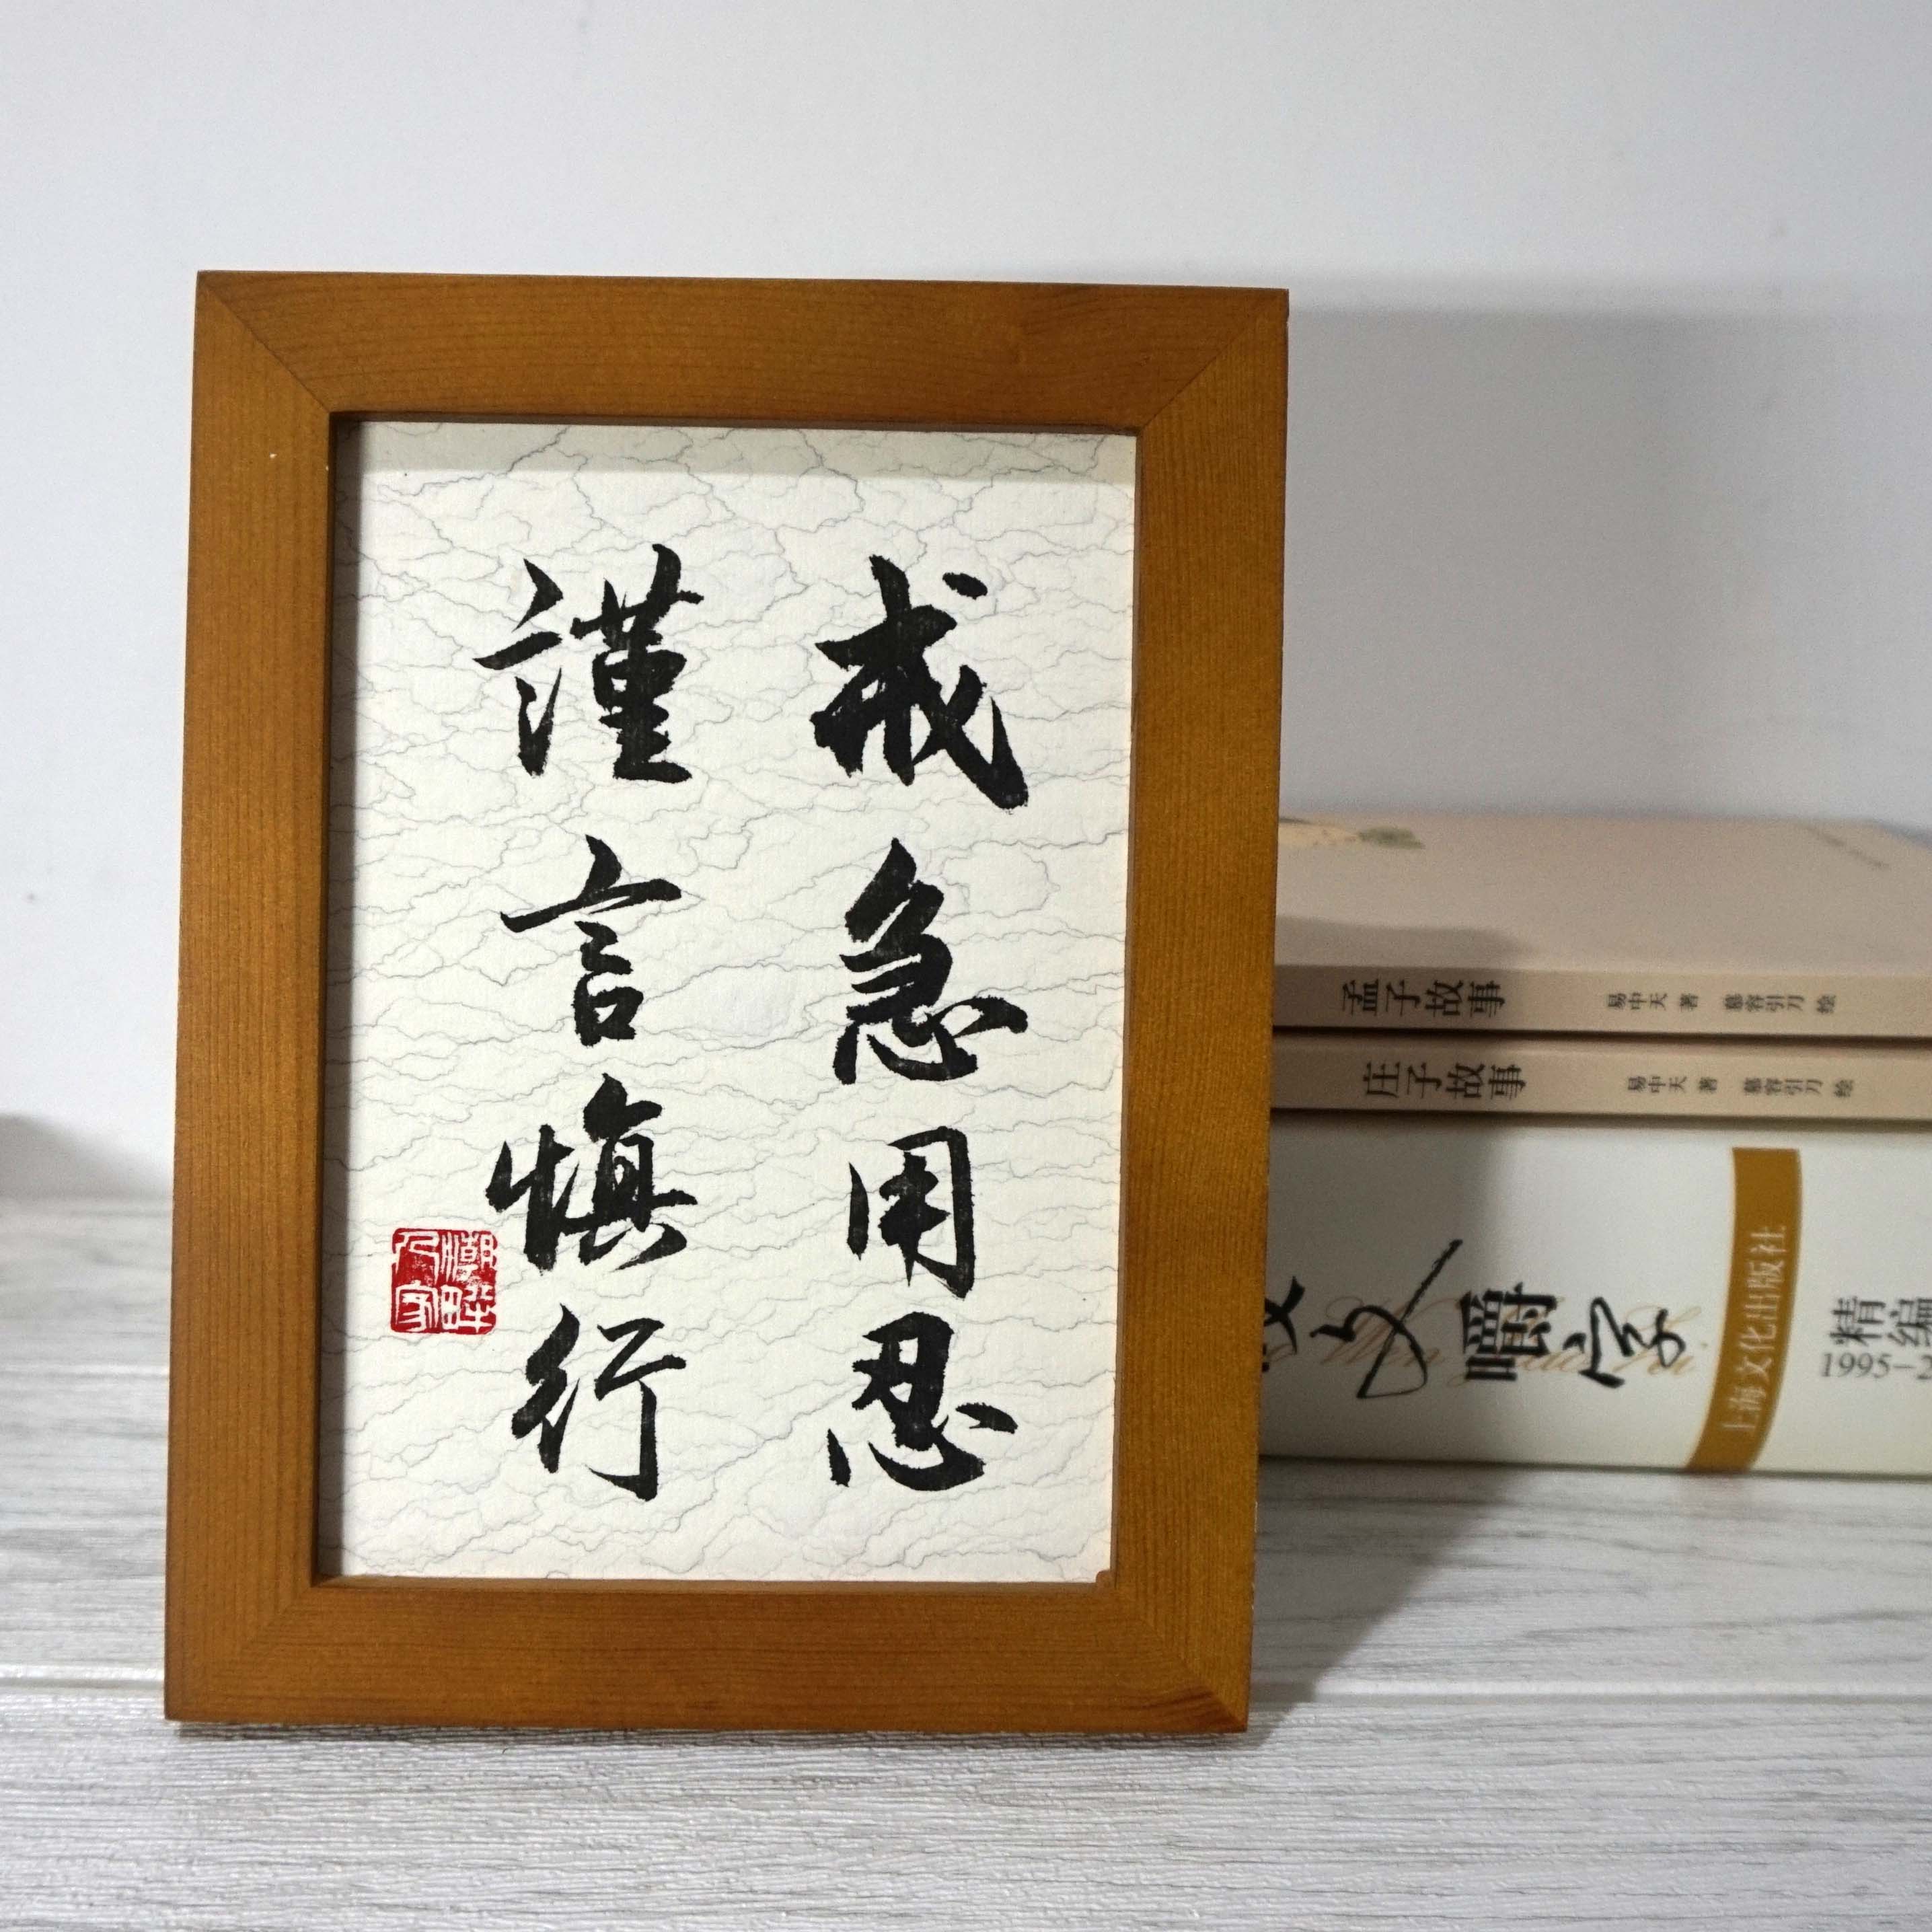 戒急用忍
謹言慎行
孟子故事 易中天 著 慕容引刀 绘
庄子故事 易中天 著 慕容引刀 绘
文嚼字
上海文化出版社
精编
1995-2